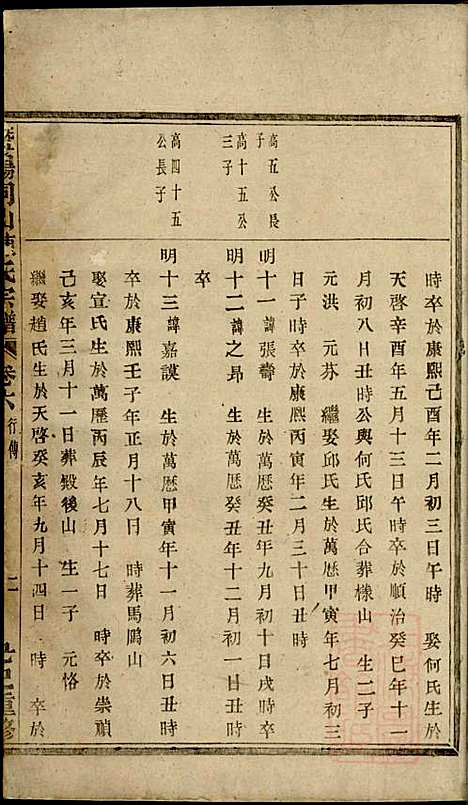 時卒於康熙己酉年二月初三日午時　娶何氏生於
天啓辛酉年五月十三日午時卒於順治癸巳年十一
月初八日丑時公與何氏邱氏合葬樣山　生二子
元洪　元芬　繼娶邱氏生於萬歷甲寅年七月初三
日子時卒於康熙丙寅年二月三十日丑時
高五公長子
明十一諱張壽　生於萬歷癸丑年九月初十日戌時卒
高十五公三子
明十二諱之昂　生於萬歷癸丑年十二月初一日丑時
卒
高四十五公長子
明十三諱嘉謨　生於萬歷甲寅年十一月初六日丑時
卒於康熙壬子年正月十八日　時葬馬鵰山
娶宣氏生於萬歷丙辰年七月十七日　時卒於崇禎
己亥年三月十一日葬殿後山　生一子　元恪
繼娶趙氏生於天啓癸亥年九月十四日　時　卒於
陽同山陳氏宗譜　卷六　行傳　二　重修